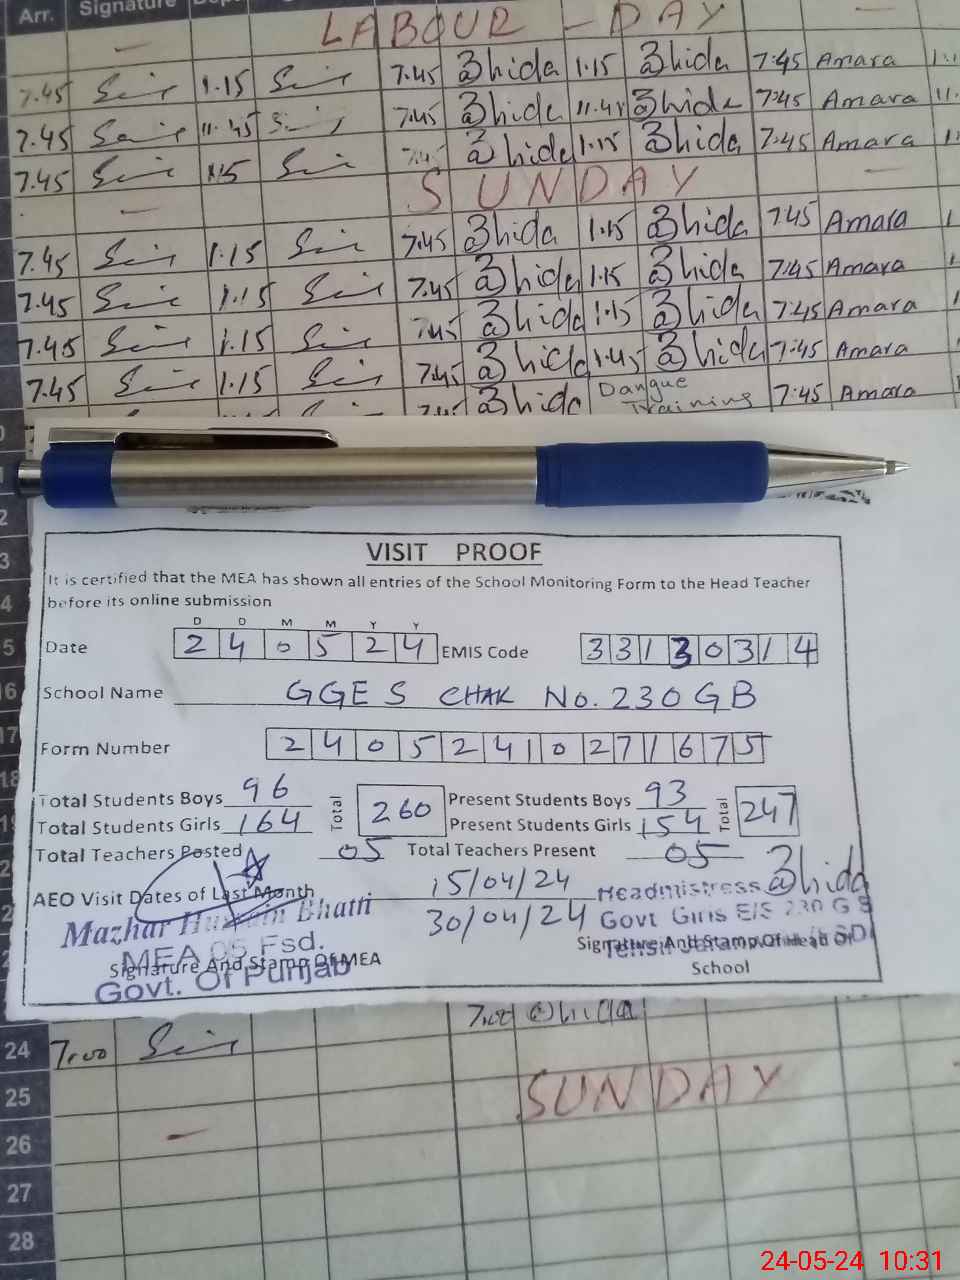 Arr. Signature
LABOUR - DAY
7.45 1.15 7.45 Zahida 1.15 Zahida 7:45 Amara
7.45 11.45 7.45 Zahida 11.45 Zahida 7:45 Amara 11.
7.45 1.15 7.45 Zahida 1.15 Zahida 7:45 Amara
SUNDAY
7.45 1.15 7.45 Zahida 1.15 Zahida 7:45 Amara
7.45 1.15 7.45 Zahida 1.15 Zahida 7:45 Amara
7.45 1.15 7.45 Zahida 1.15 Zahida 7:45 Amara
7.45 1.15 7.45 Zahida 1.45 Zahida 7:45 Amara
Zahida Dangue Training 7:45 Amara
VISIT PROOF
It is certified that the MEA has shown all entries of the School Monitoring Form to the Head Teacher
before its online submission
D D M M Y Y
Date 2 4 0 5 2 4 EMIS Code 3 3 1 3 0 3 1 4
School Name GGES CHAK No. 230 GB
Form Number 2 4 0 5 2 4 1 0 2 7 1 6 7 5
Total Students Boys 96 Total 260 Present Students Boys 93 Total 247
Total Students Girls 164 Present Students Girls 154
Total Teachers Posted 05 Total Teachers Present 05
AEO Visit Dates of Last Month 15/04/24
30/04/24
Headmistress Zahida
Govt Girls E/S 230 G B
Mazhar Hussain Bhatti
MEA 05 Fsd.
Govt. Of Punjab
Signature And Stamp Of MEA
Signature And Stamp Of Head Of
School
7.00 Zahida
24 7.00
25 SUNDAY
26
27
28
24-05-24 10:31